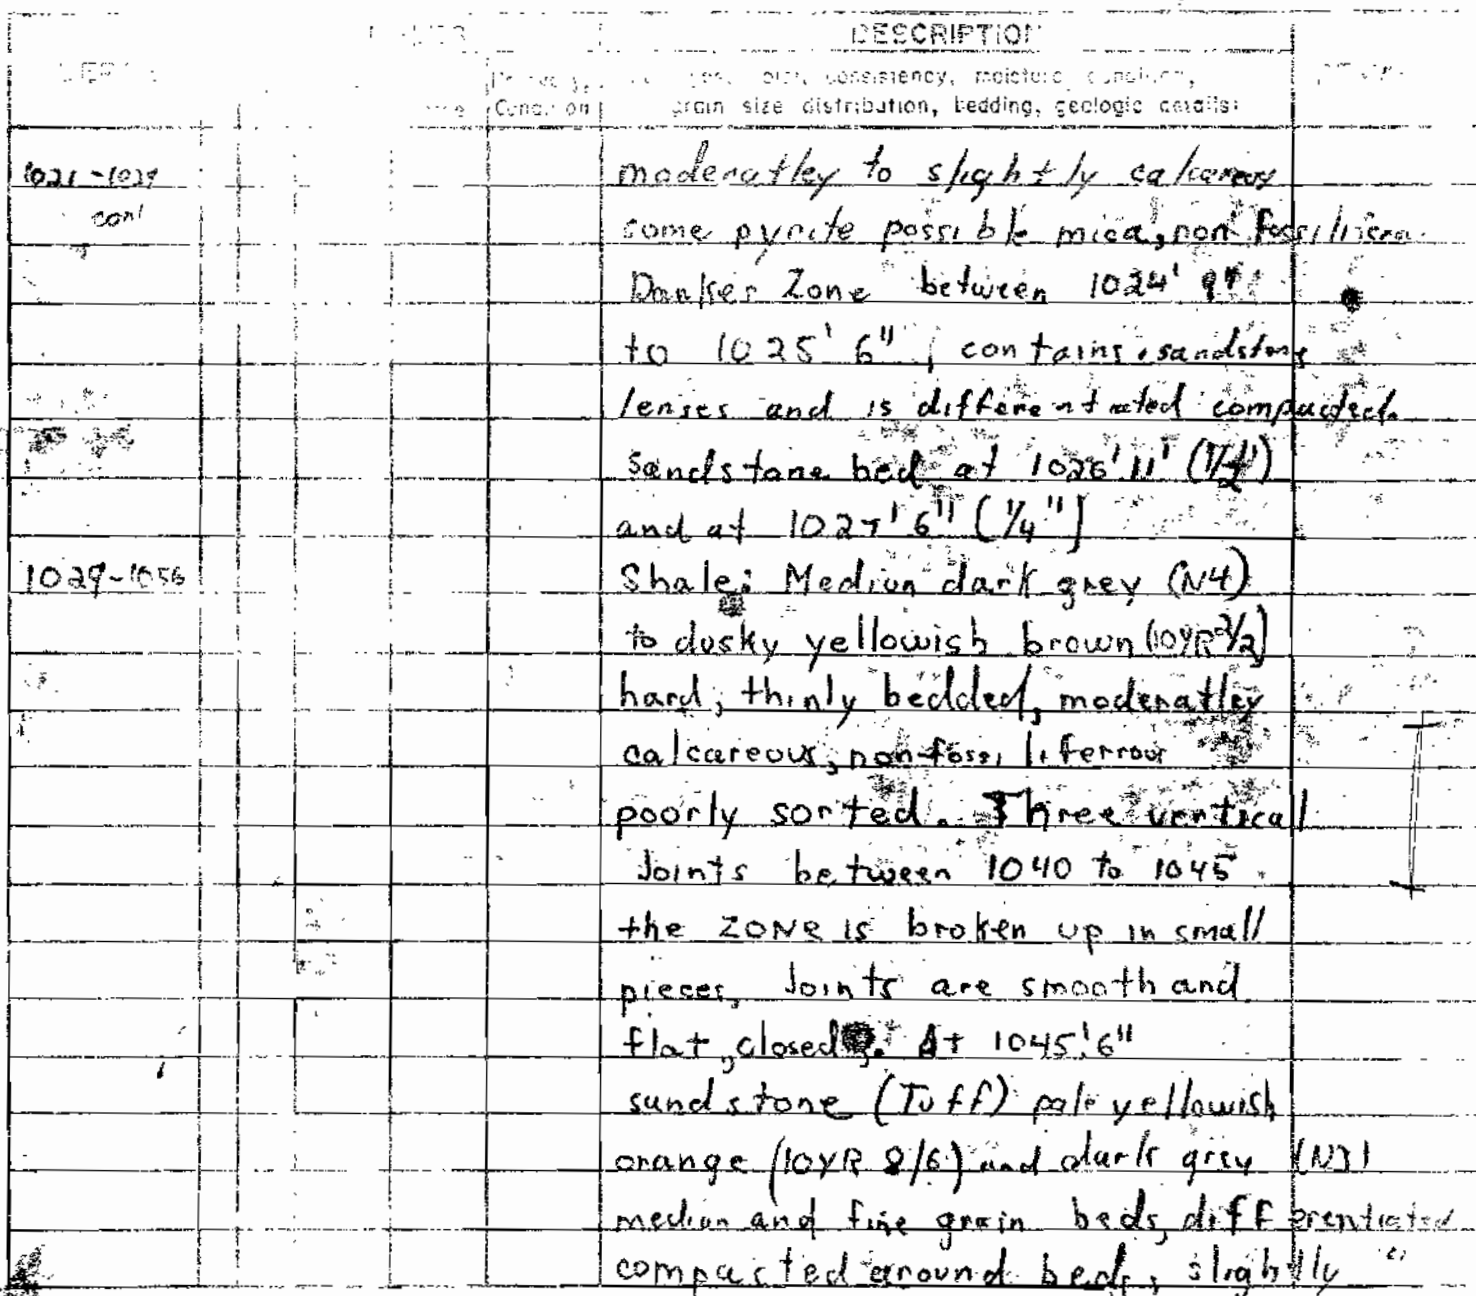 DESCRIPTION
consistency, moisture condition,
Condition grain size distribution, bedding, geologic details
1021-1029 moderatley to slightly calcareous
cont some pyrite possible mica, non fossilifera
Darker Zone between 1024' 9"
to 1025' 6", contains sandstone
lenses and is differentrated compacted.
Sandstone bed at 1026' 11' (1/2")
and at 1027' 6" (1/4")
1029-1056 Shale: Mediun dark grey (N4)
to dusky yellowish brown (10YR 2/2)
hard, thinly bedded, moderatley
calcareous, non-fossiliferrous
poorly sorted. Three vertical
Joints between 1040 to 1045.
the ZONE is broken up in small
pieces, Joints are smooth and
flat, closed. At 1045' 6"
sandstone (Tuff) pale yellowish
orange (10YR 8/6) and dark grey (N3)
median and fine grain beds, differentiated
compacted around beds, slightly